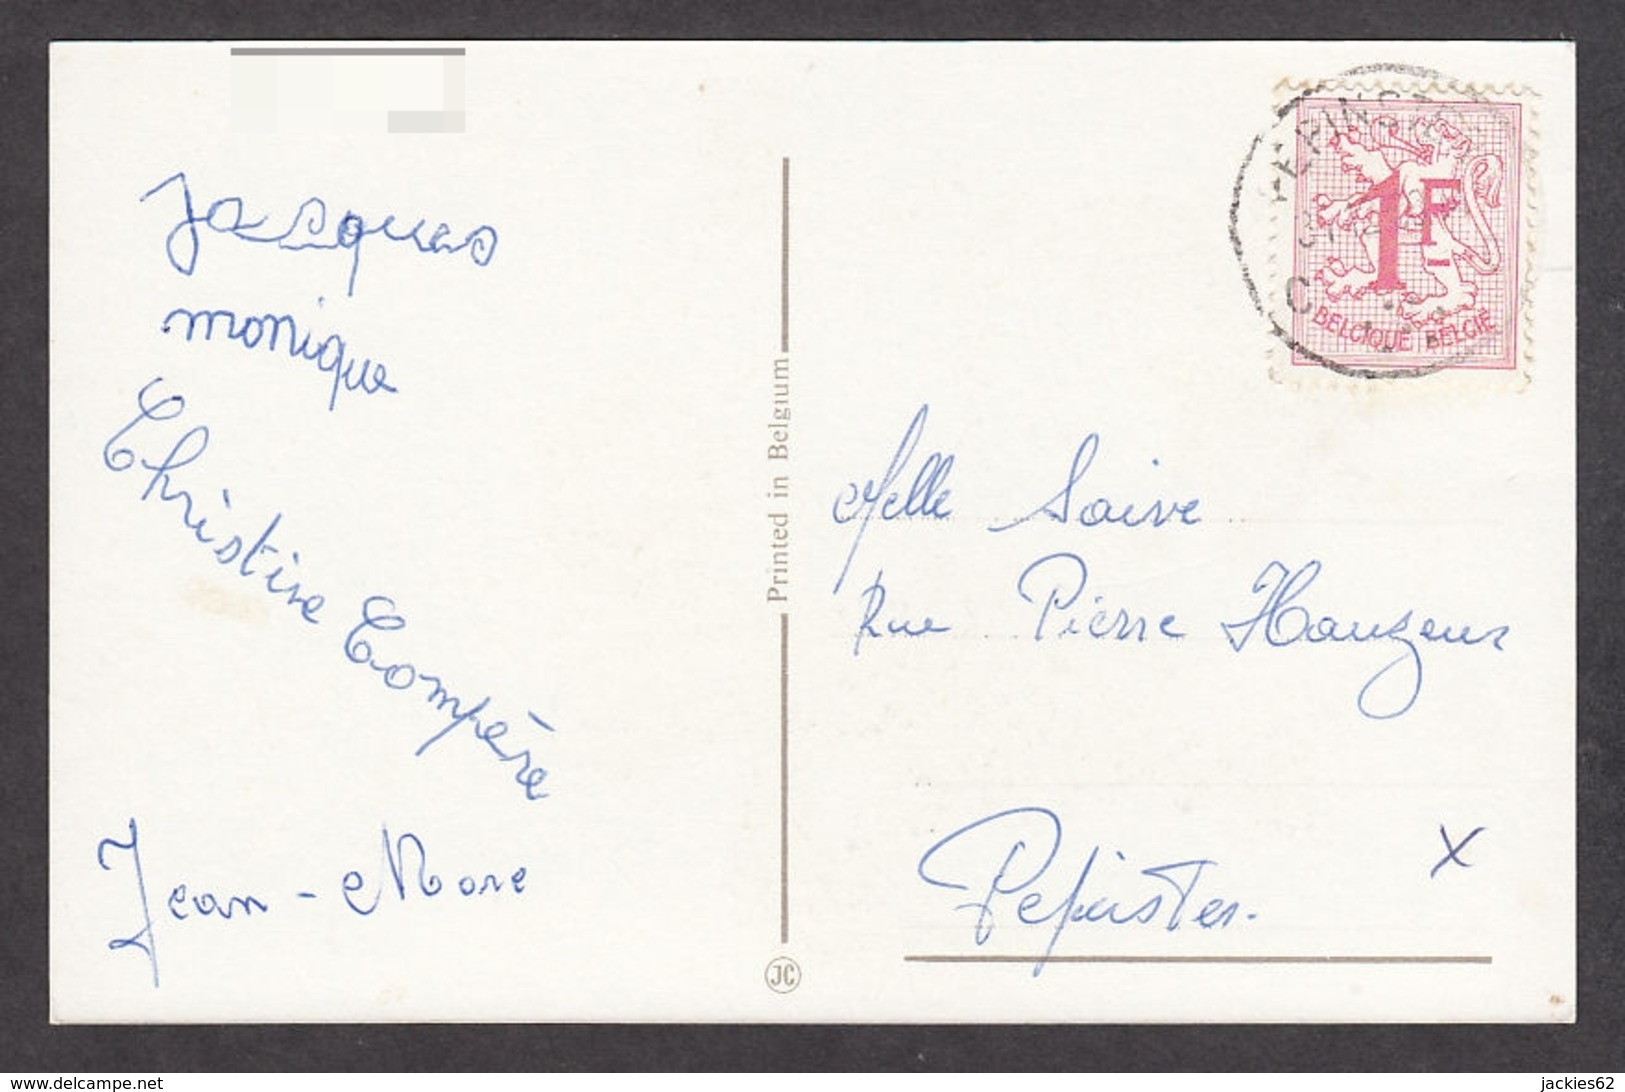 Jacques
monique
Christine Compère
Jean-Marc
Printed in Belgium
JC
PEPINSTER
C
1F
BELGIQUE BELGIË
Melle Saive
Rue Pierre Hauzeur
Pepinster.
X
www.delcampe.net
jackies62